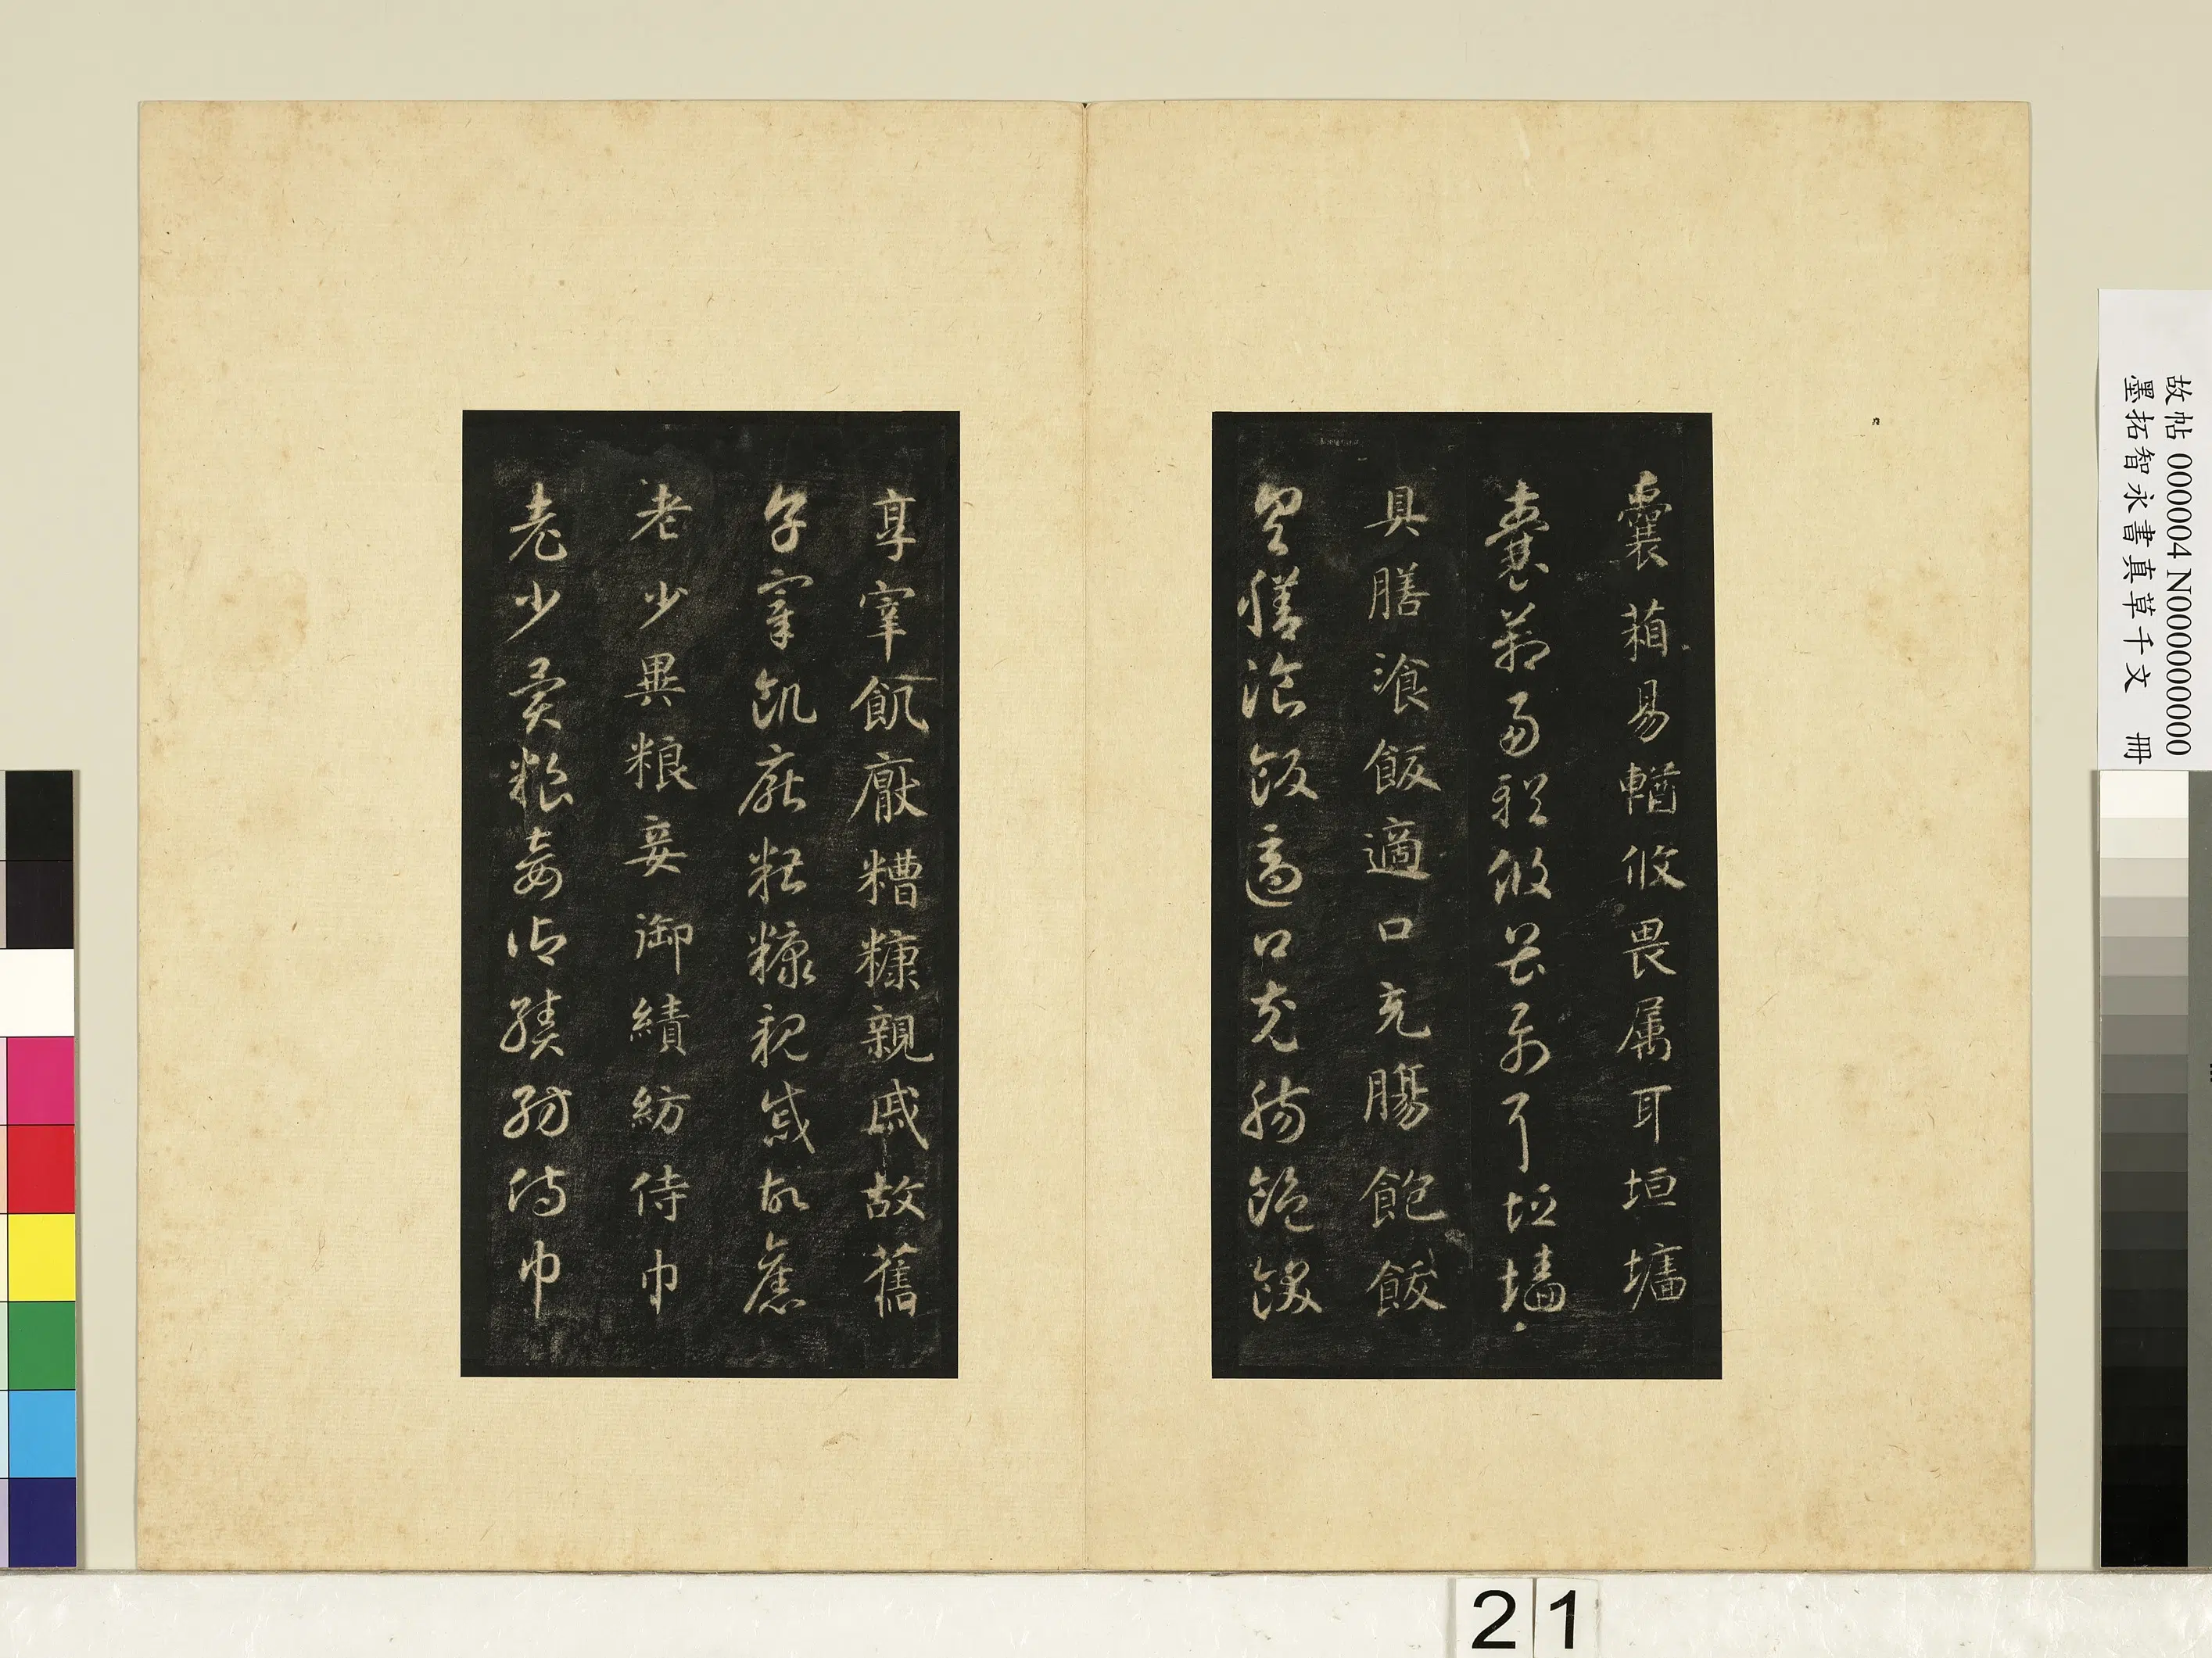 囊葙易輶攸畏属耳垣墻
囊葙易輶攸畏属耳垣墻
具膳飡飯適口充腸飽飫
具膳飡飯適口充腸飽飫
享宰飢厭糟糠親戚故舊
享宰飢厭糟糠親戚故舊
老少異粮妾御績紡侍巾
老少異粮妾御績紡侍巾
故帖 000004 N000000000
墨拓智永書真草千文 冊
21